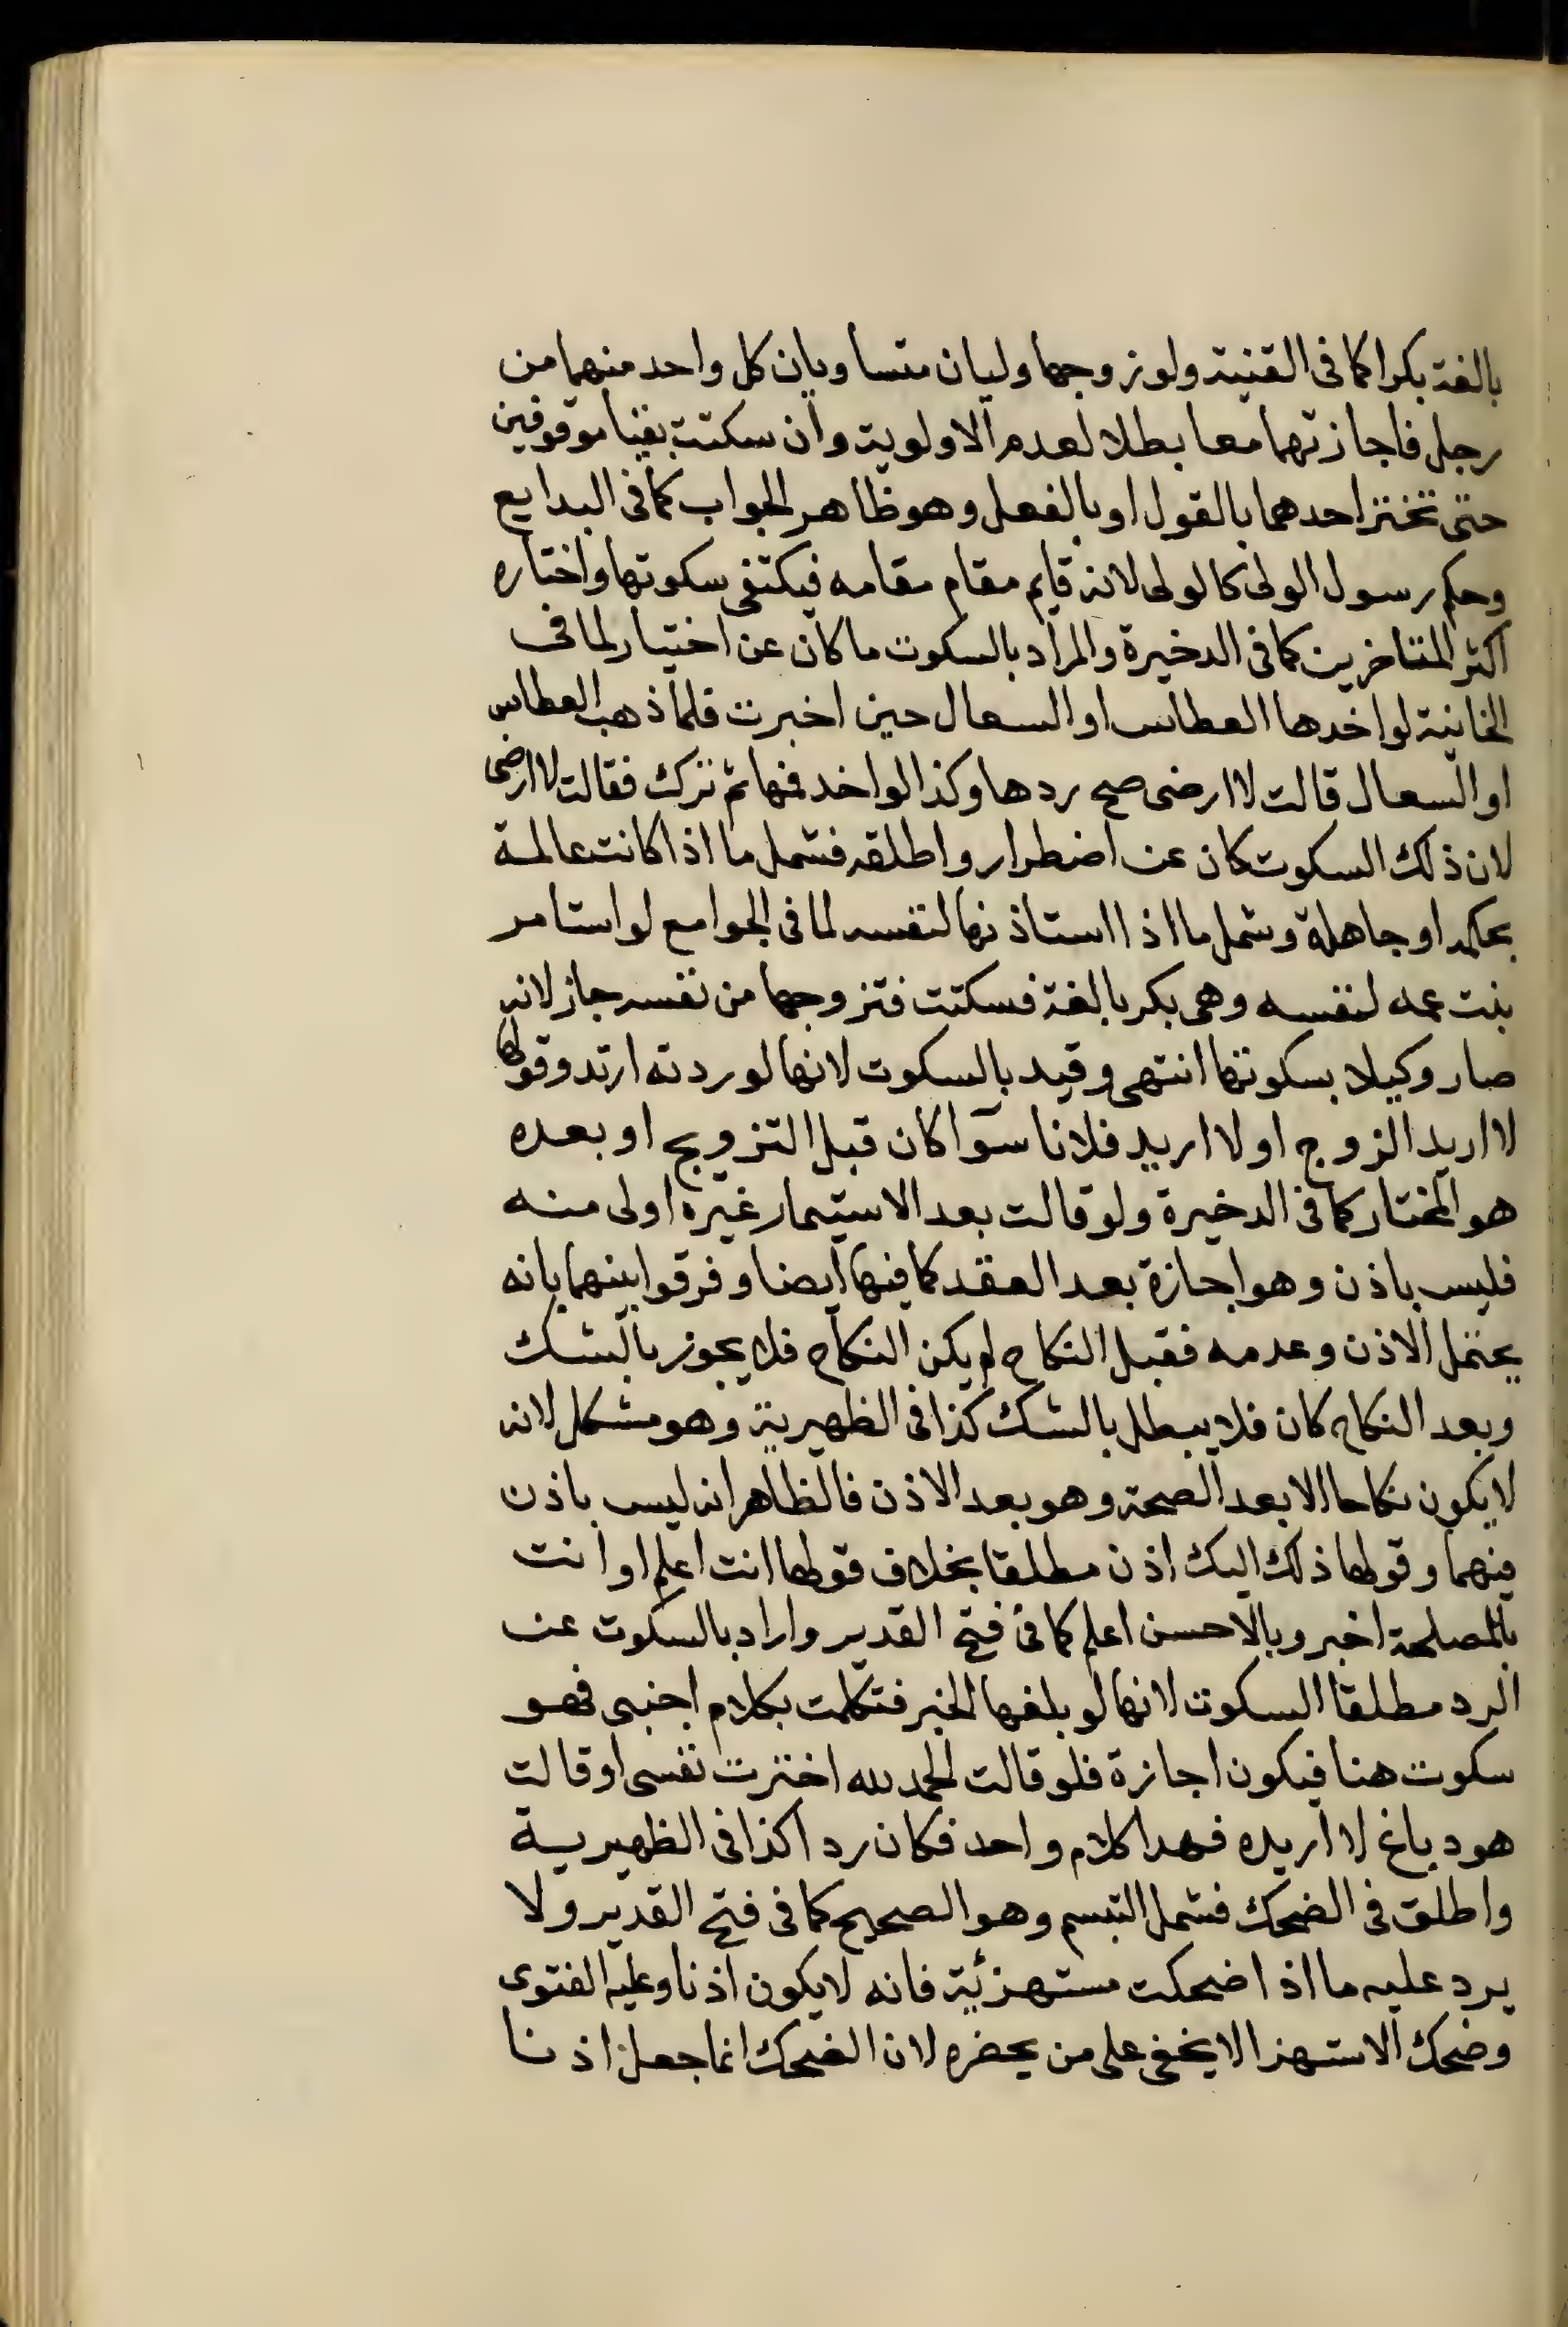 بالغة بكرا كما فى القنية ولو زوجها وليان متساويان كل واحد منهما من
رجل فاجازتهما معا بطلا لعدم الاولوية وان سكتت بقيا موقوفين
حتى تختر احدهما بالقول او بالفعل وهو ظاهر الجواب كما فى البدايع
وحكم رسول الولى كالولى لانه قايم مقام مقامه فيكتفى سكوتها واختاره
اكثر المتاخرين كما فى الدخيرة والمراد بالسكوت ما كان عن اختيار لما فى
الخانية لو اخدها العطاس او السعال حين اخبرت فلما ذهب العطاس
او السعال قالت لا ارضى صح ردها وكذا لو اخد فمها ثم ترك فقالت لا ارضى
لان ذلك السكوت كان عن اضطرار واطلقه فشمل ما اذا كانت عالمة
بحكمه او جاهلة وشمل ما اذا استاذنها لنفسه لما فى الجوامع لو استامر
بنت عمه لنفسه وهى بكر بالغة فسكتت فتزوجها من نفسه جاز لانه
صار وكيلا بسكوتها انتهى وقيد بالسكوت لانها لو ردته ارتد وقولها
لا اريد الزوج او لا اريد فلانا سوآ كان قبل التزويج او بعده
هو المختار كما فى الدخيرة ولو قالت بعد الاستيمار غيره اولى منه
فليس باذن وهو اجازة بعد العقد كما فيها ايضا وفرقوا بينهما بانه
يحتمل الاذن وعدمه فقبل النكاح لم يكن النكاح فلا يجوز بالشك
وبعد النكاح كان فلا يبطل بالشك كذا فى الظهيرية وهو مشكل لانه
لا يكون نكاحا الا بعد الصحة وهو بعد الاذن فالظاهر انه ليس باذن
فيهما وقولها ذلك اليك اذن مطلقا بخلاف قولها انت اعلم او انت
بالمصلحة اخبر وبالاحسن اعلم كما فى فتح القدير واراد بالسكوت عن
الرد مطلقا السكوت لانها لو بلغها الخبر فتكلمت بكلام اجنبى فهو
سكوت هنا فيكون اجازة فلو قالت الحمد لله اخترت نفسى او قالت
هو دباغ لا اريده فهدا كلام واحد فكان ردا كذا فى الظهيرية
واطلق فى الضحك فشمل التبسم وهو الصحيح كما فى فتح القدير ولا
يرد عليه ما اذا ضحكت مستهزئية فانه لا يكون اذنا وعليه الفتوى
وضحك الاستهزا لا يخفى على من يحضره لان الضحك انما جعل اذنا